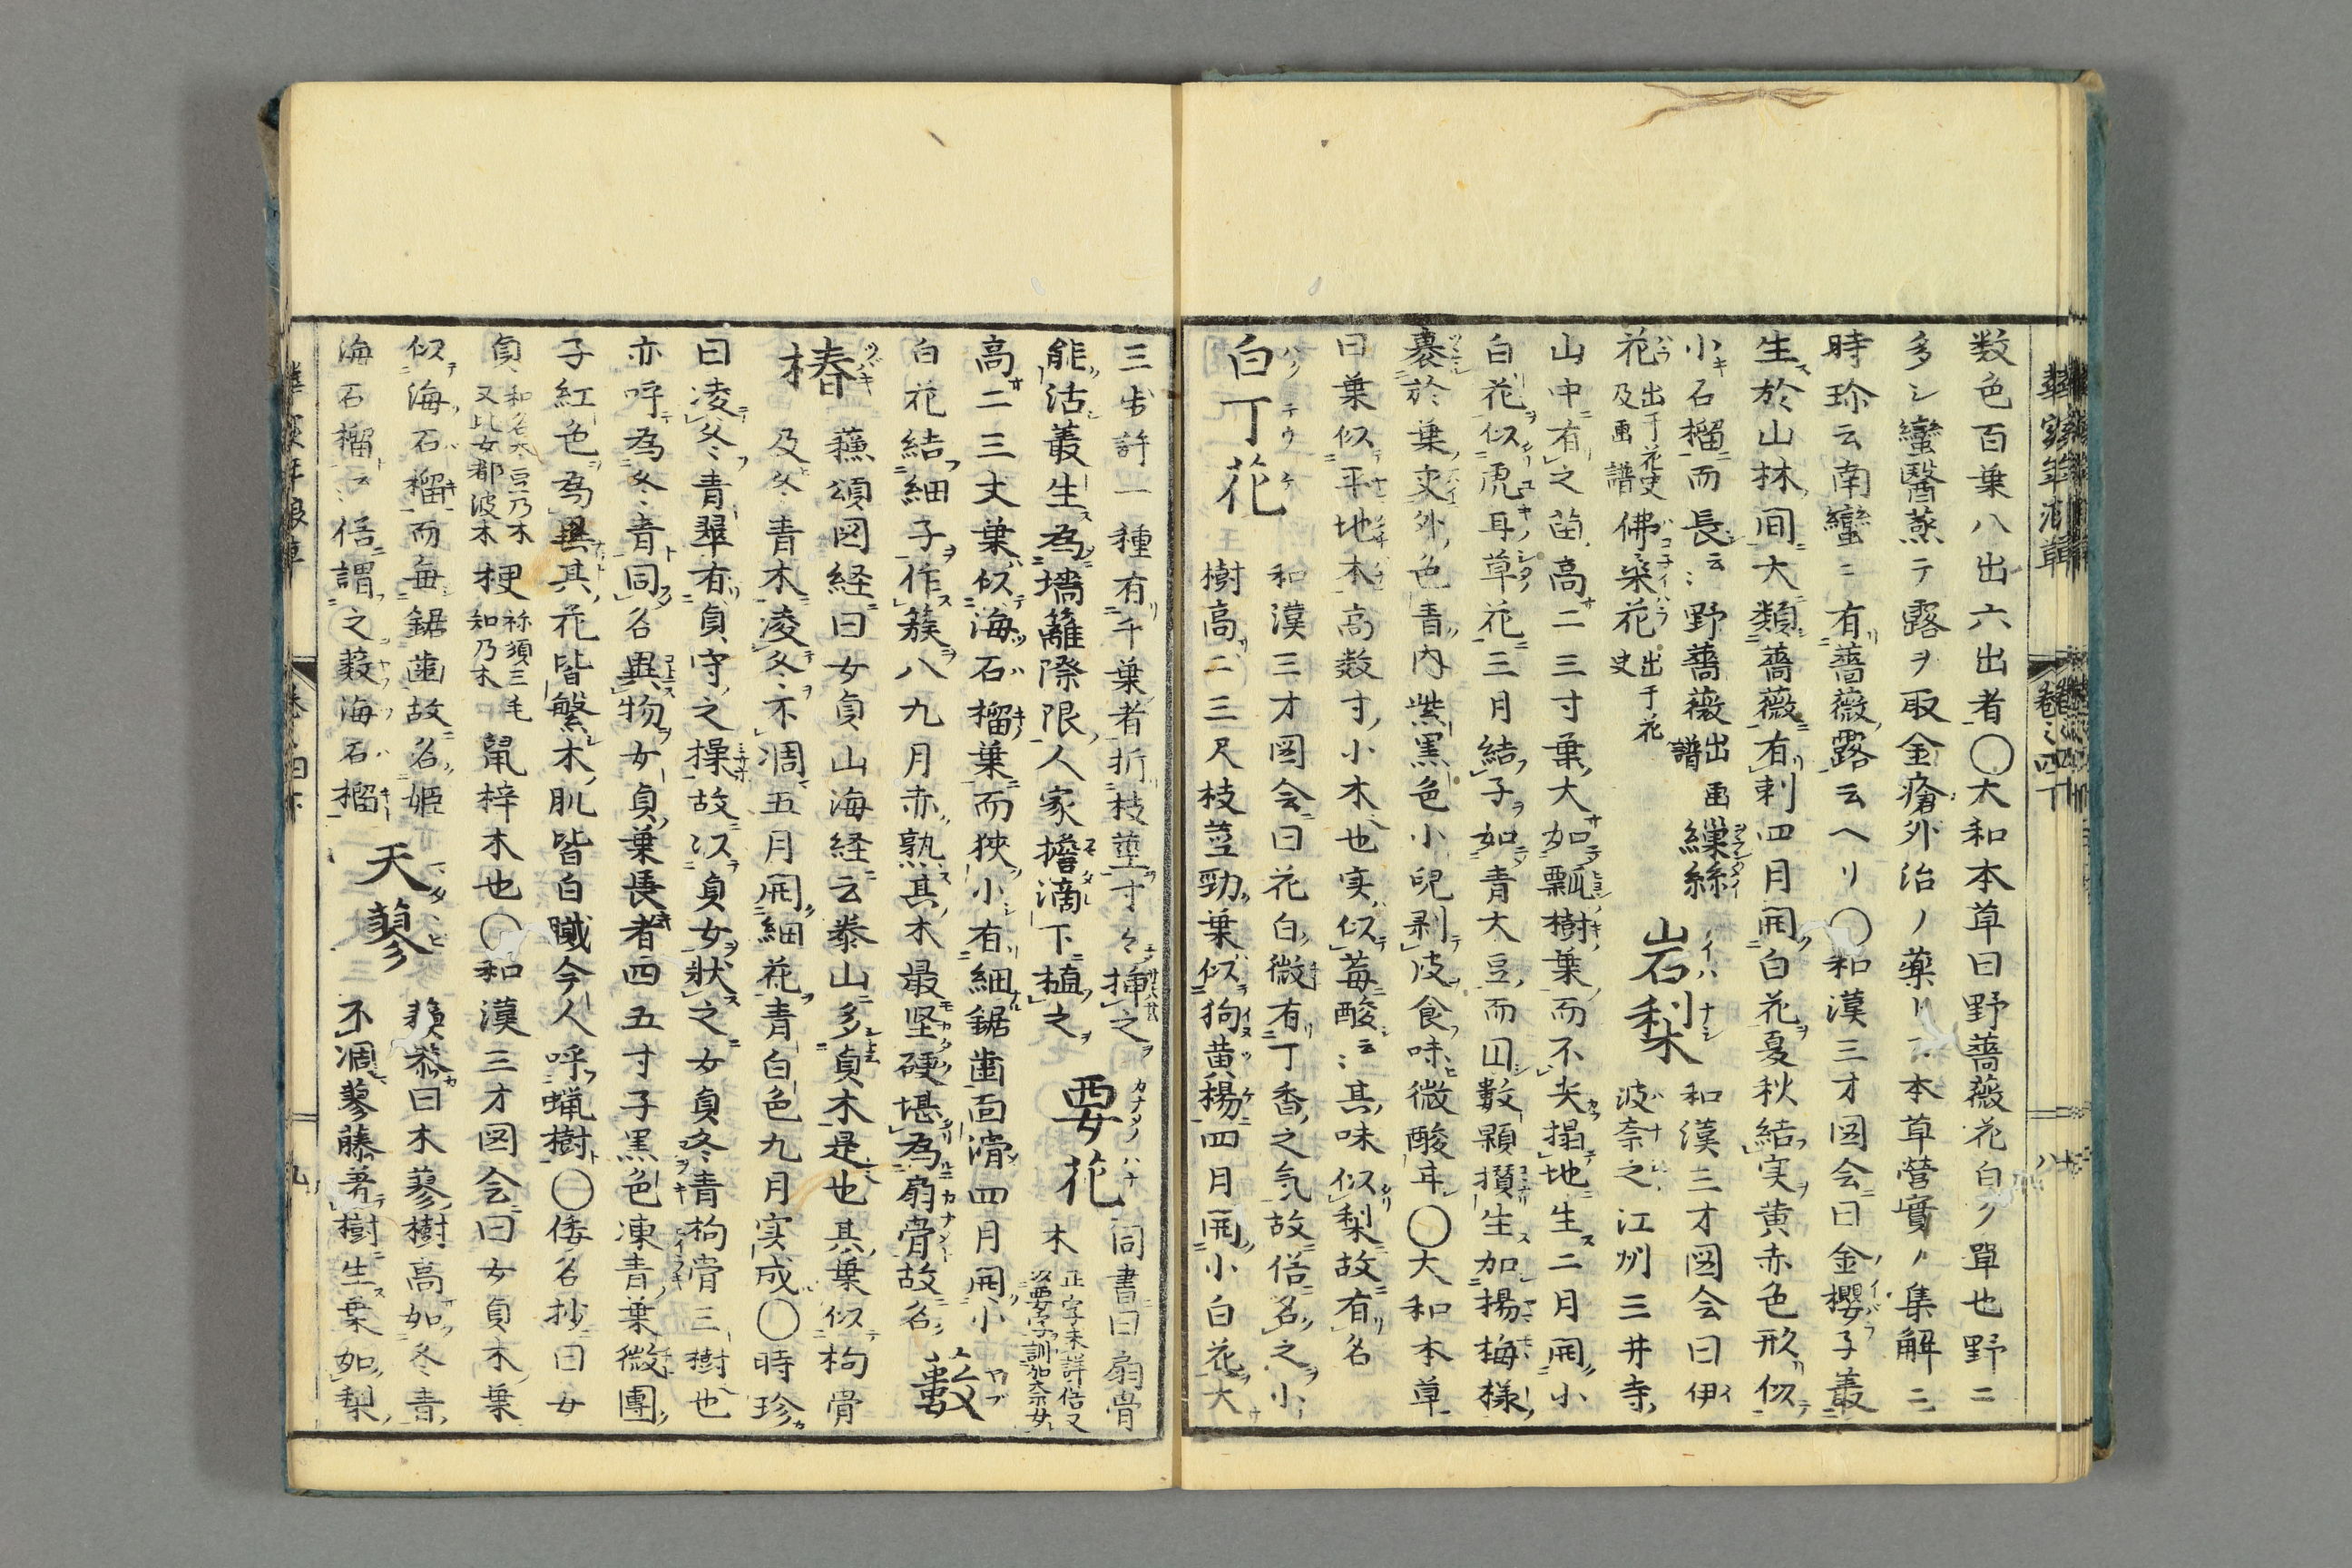 数色百葉八出六出者〇大和本草曰野薔薇花白ク單也野ニ
多シ蠻醫蒸テ露ヲ取金瘡外治ノ藥トス本草營實ノ集解ニ
時珎云南蠻ニ有薔薇露云ヘリ〇和漢三才図会曰金櫻子叢
生於山林間大類薔薇有刺四月開白花夏秋結実黄赤色形似
小石榴而長云〻野薔薇出画譜 繅絲
花出于花史及画譜 佛桒花出于花史 岩梨 和漢三才図会曰伊波奈之江州三井寺
山中有之苗高二三寸葉大如瓢樹葉而不尖搨地生二月開小
白花似虎耳草花三月結子如青大豆而四數顆攢生加楊梅様
裹於葉文外色青内紫黒色小児剥皮食味微酸耳〇大和本草
曰葉似平地木高数寸小木也実似莓酸云〻其味似梨故有名
白丁花 和漢三才図会曰花白微有丁香之気故俗名之小
樹高二三尺枝莖勁葉似狗黄楊四月開小白花大
三歩許一種有千葉者折枝莖寸々挿之 要花 同書曰扇骨木 正字未詳俗又以要字訓加奈女
能活叢生為墻籬際限人家擔滴下植之
高二三丈葉似海石榴葉而狹小有細鋸歯面滑四月開小
白花結細子作簇八九月赤熟其木最堅硬堪為扇骨故名 藪
椿 蘓頌図経曰女貞山海経云泰山多貞木是也其葉似枸骨
及冬青木凌冬不凋五月開細花青白色九月実成〇時珍
曰凌冬青翠有貞守之操故以貞女狀之女貞冬青枸骨三樹也
亦呼為冬青同名異物女貞葉長者四五寸子黒色凍青葉微團
子紅色為異其花皆繁木肌皆白膩今人呼蝋樹〇倭名抄曰女
貞和名太豆乃木又比女都波木 梗祢須三毛知乃木 鼠梓木也〇和漢三才図会曰女貞木葉
似海石榴而毎鋸歯故名姫
海石榴云〻俗謂之薮海石榴 天蓼 蘓恭曰木蓼樹高如冬青
不凋蓼藤著樹生葉如梨